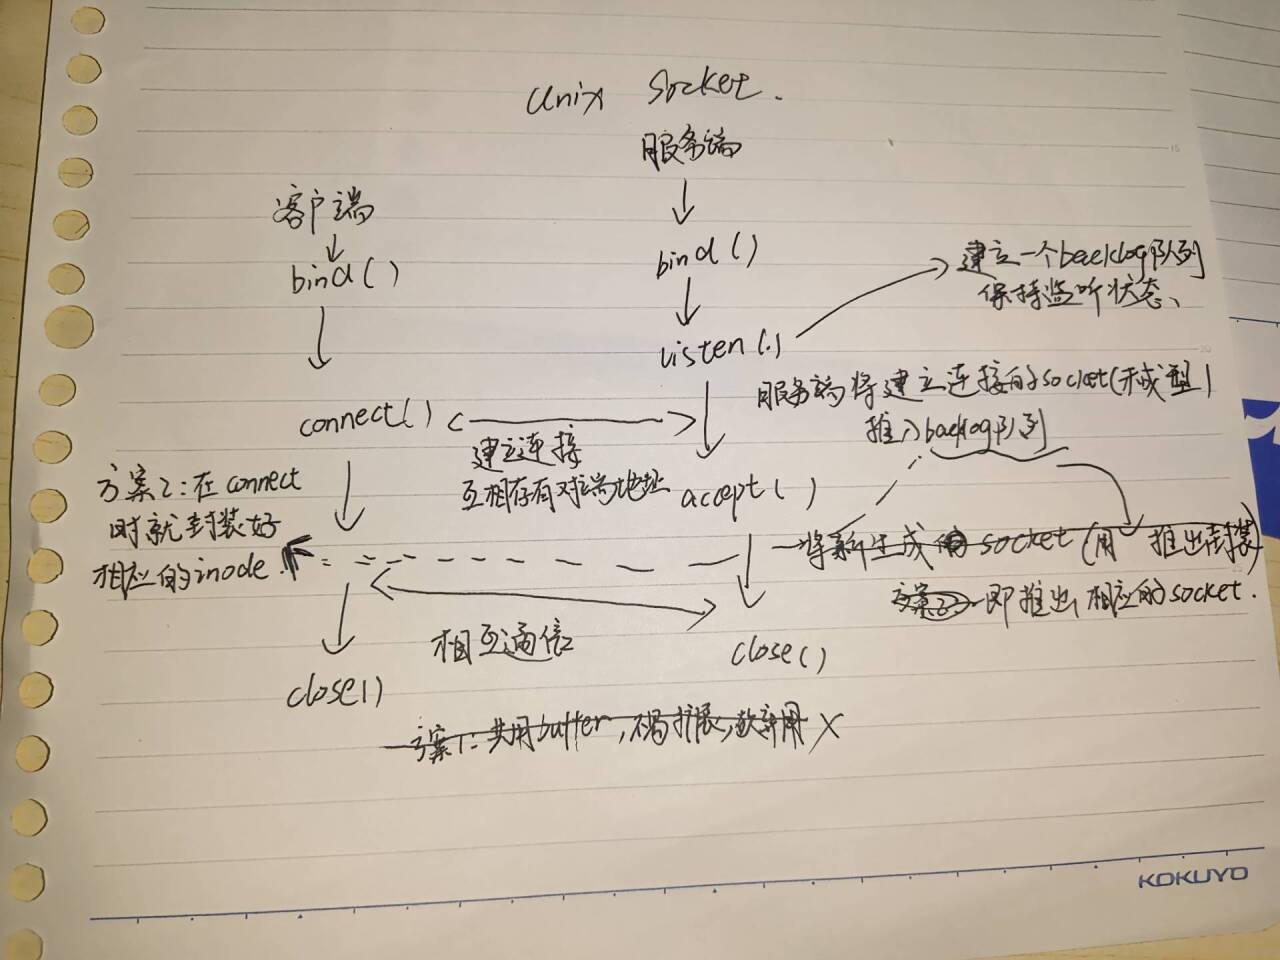 Unix Socket.
服务端
客户端
bind()
bind()
建立一个backlog队列
保持监听状态、
listen(.)
服务端将建立连接的socket(未成型)
推入backlog队列
connect()
建立连接
互相存有对端地址
accept()
方案2:在connect
时就封装好
相应的inode.
将新生成的socket(用 推出封装)
方案2 即推出相应的socket.
相互通信
close()
close()
方案1:共用buffer,不易扩展,故弃用 X
KOKUYO